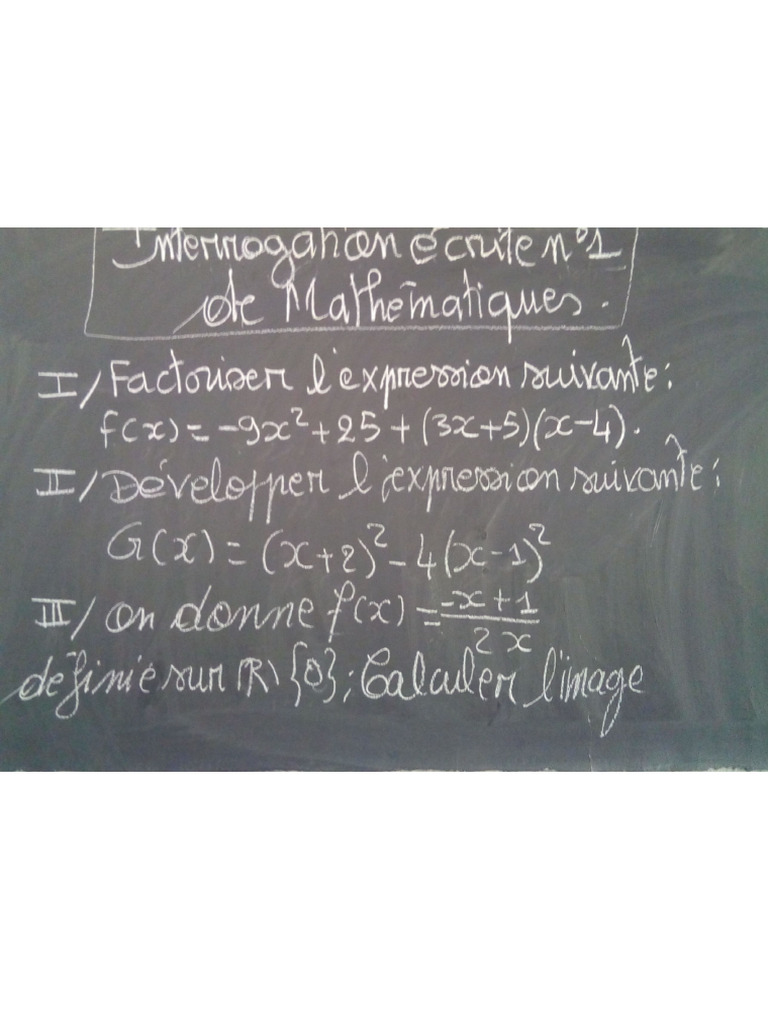 Interrogation écrite n°1
de Mathématiques.
I/ Factoriser l'expression suivante:
f(x) = -9x²+25+(3x+5)(x-4).
II/ Développer l'expression suivante:
G(x) = (x+2)² - 4(x-1)²
III/ on donne f(x) = -x+1 / 2x
définie sur ℝ\{0}; Calculer l'image